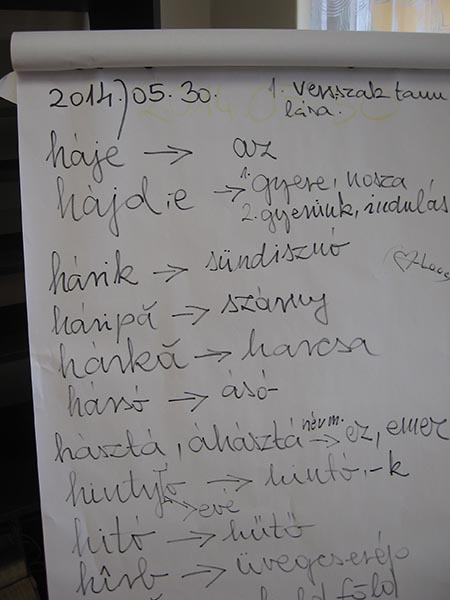 2014.) 05. 30. 1. versszak tanu
lása.
háje → az
hájd.e → 1. gyere, nosza
2. gyerünk, indulás
hárik → sündisznó
háripă → szárny
hárkă → harcsa
hársó → ásó
hásztá, áhásztá névm. → ez, emez
hintyĪó → hintó, -k
→ evé
hitó → hűtő
hîrb → üvegcserép
föld